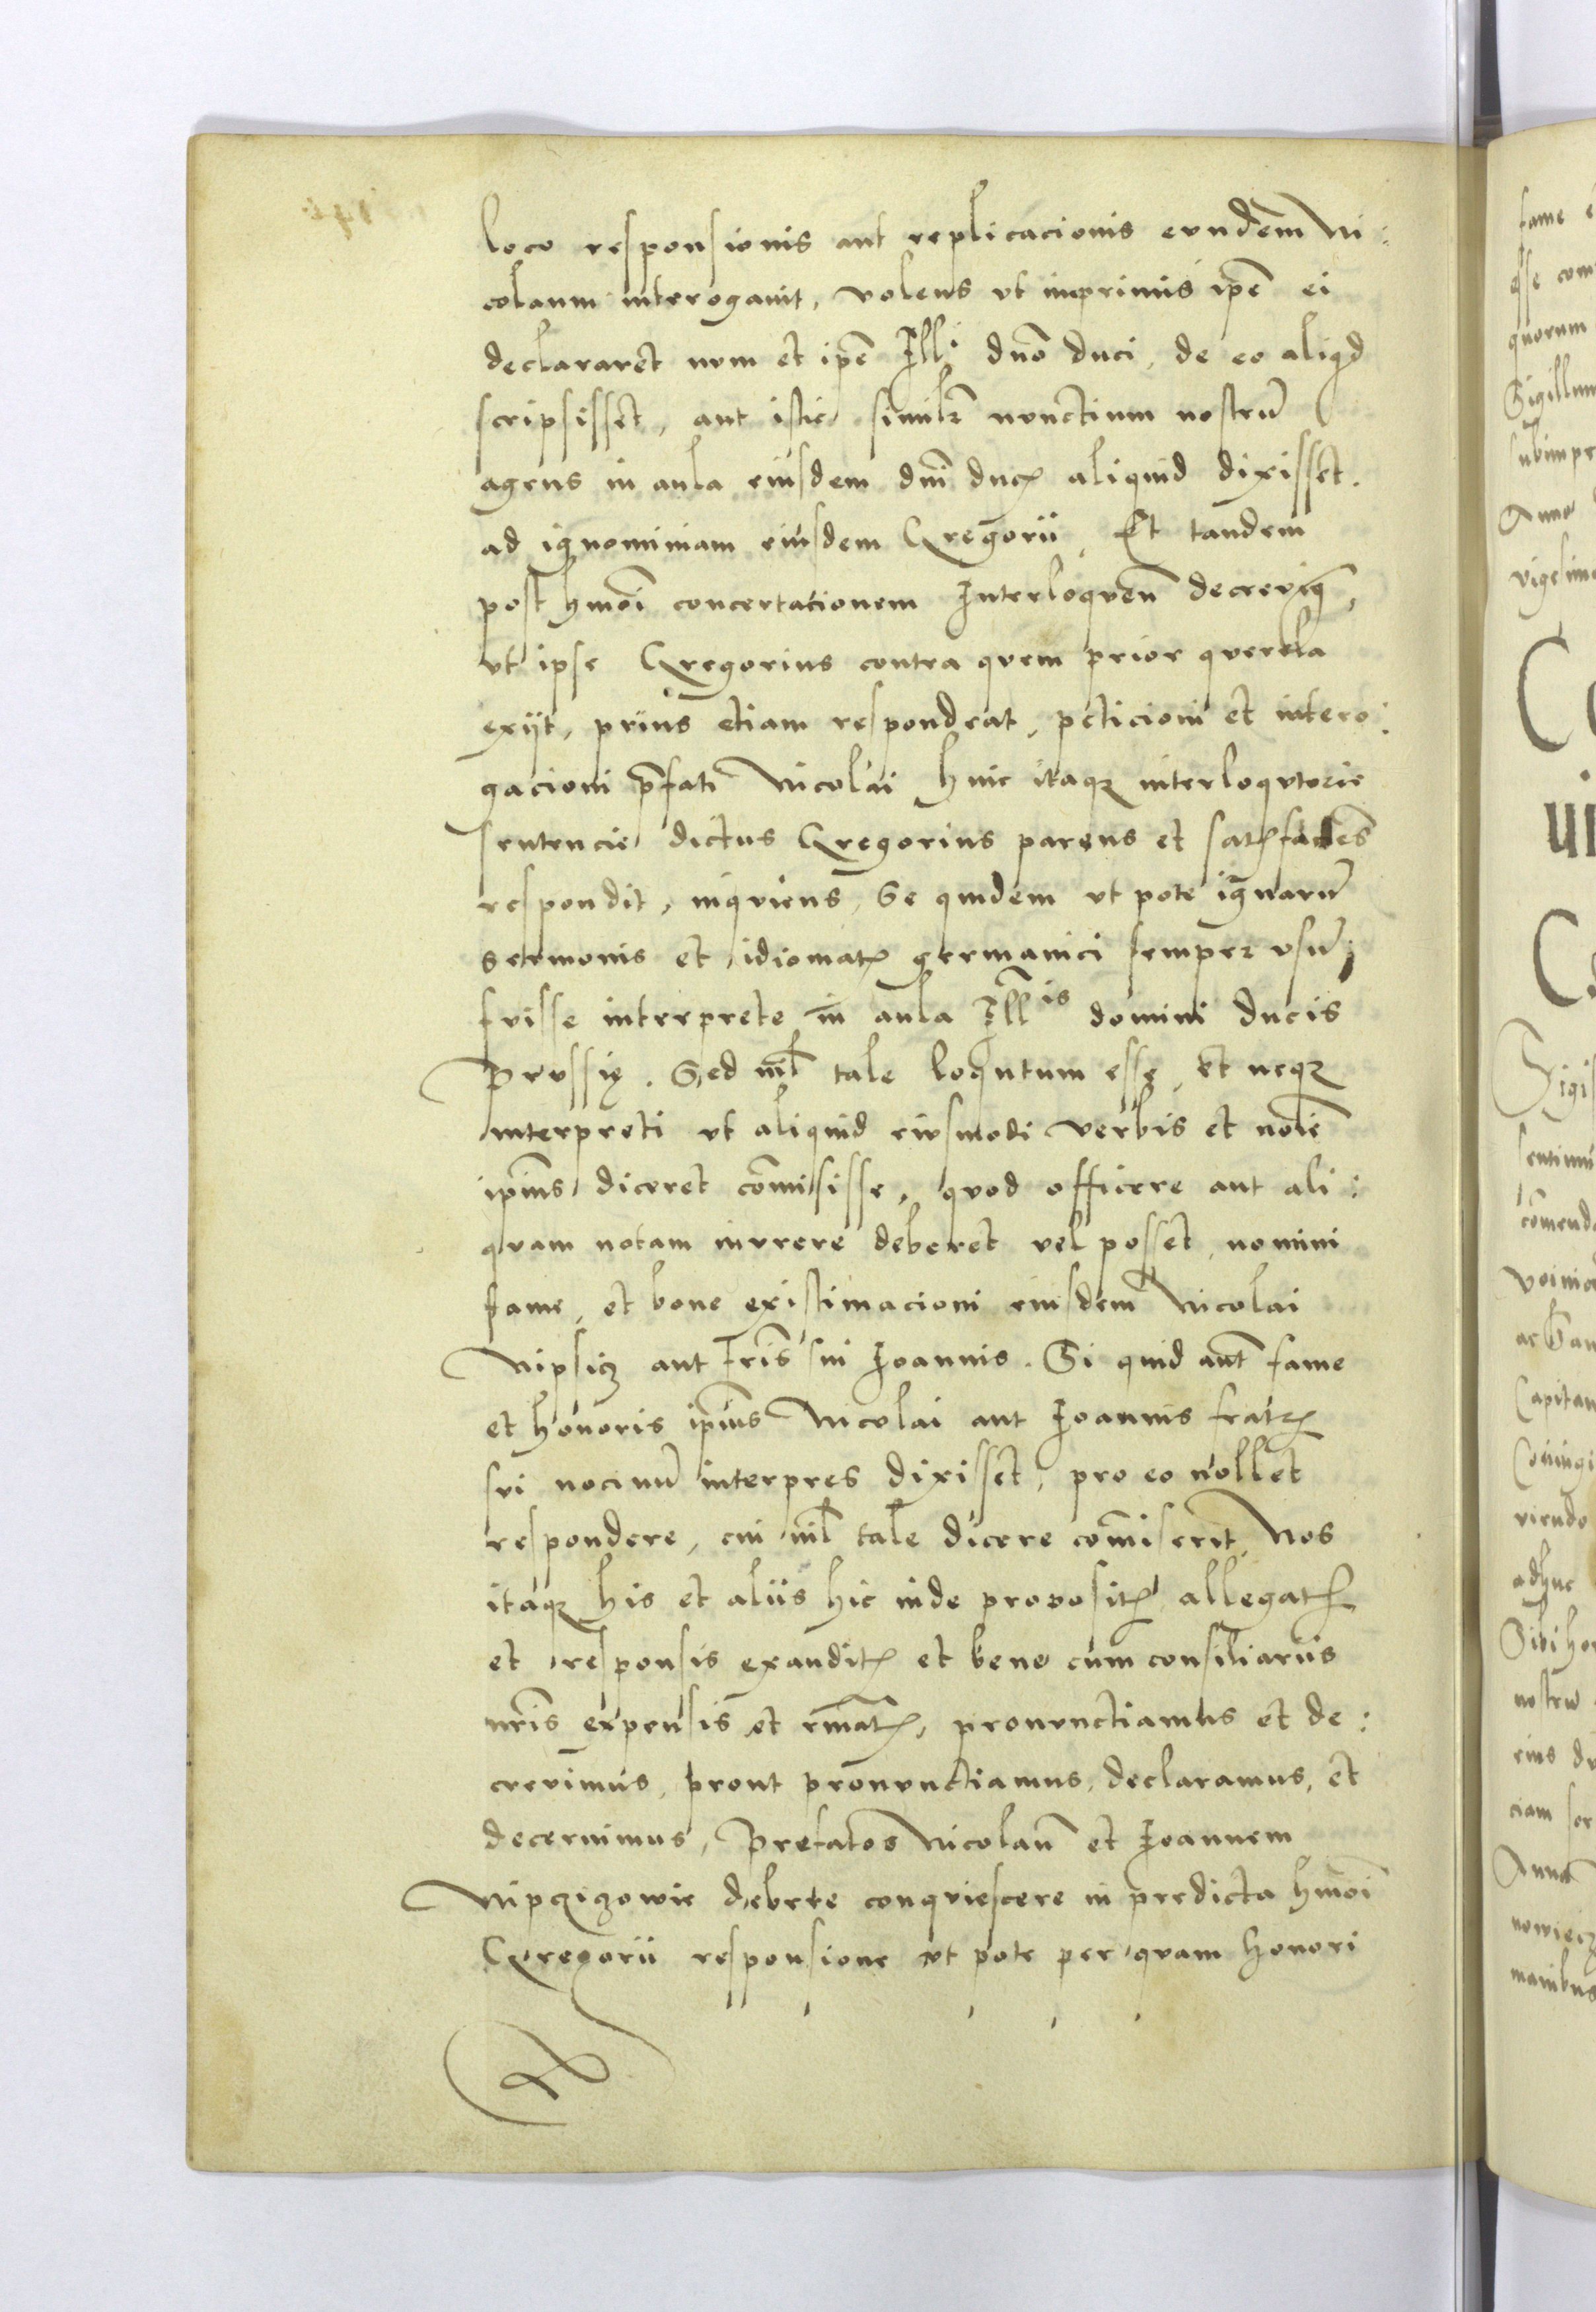 loco responsionis aut replicacionis eundem Ni:
colaum interogauit, volens vt inprimis ipē ei
declararet num et ipē Illi dn̄o duci, de eo aliq̄d
scripsisset, aut istic similr̄ nunctium nostrū
agens in aula eiusdem dn̄i ducꝭ aliquid dixisset.
ad ignominiam eiusdem Gregorii, Et tandem
post hmōi concertacionem Interloquen̄
vt ipse Gregorius contra quem prior querela
exijt, prius etiam respondeat, peticioni et intero:
gacioni p̄fati Nicolai Huic itaqꝫ interloqutorie
sentencie dictus Gregorius parens et satꝭfaciēs
respondit, inquiens, Se quidem vt pote ignarū
sermonis et idiomatꝭ germanici semper vsū
fuisse interprete in aula Ill̄is domini ducis
Prussię. Sed nil̄ tale loqutum esse, et neqꝫ
interpreti vt aliquid eiusmodi verbis et noīe
ipīus diceret com̄isisse, quod officere aut ali:
quam notam inurere deberet vel posset, nomini
fame, et bone existimacioni eiusdem Nicolai
Nipsicz aut fr̄is sui Joannis. Si quid aut̄ fame
et honoris ipīus Nicolai aut Joannis fratrꝭ
sui nociuū interpres dixisset, pro eo nollet
respondere, cui nil̄ tale dicere com̄iserit, Nos
itaqꝫ his et aliis hic inde propositꝭ allegatꝭ
et responsis exauditꝭ et bene cum consiliariis
nr̄is expensis et
pronunctiamus et de:
creuimus, prout pronunctiamus, declaramus, et
decernimus, Prefatos Nicolaū et Joannem
Nipczigowie debere conquiescere in predicta hmōi
Gregorii responsione vt pote per quam honori
fame
esse
quorum
Sigillum
Anno